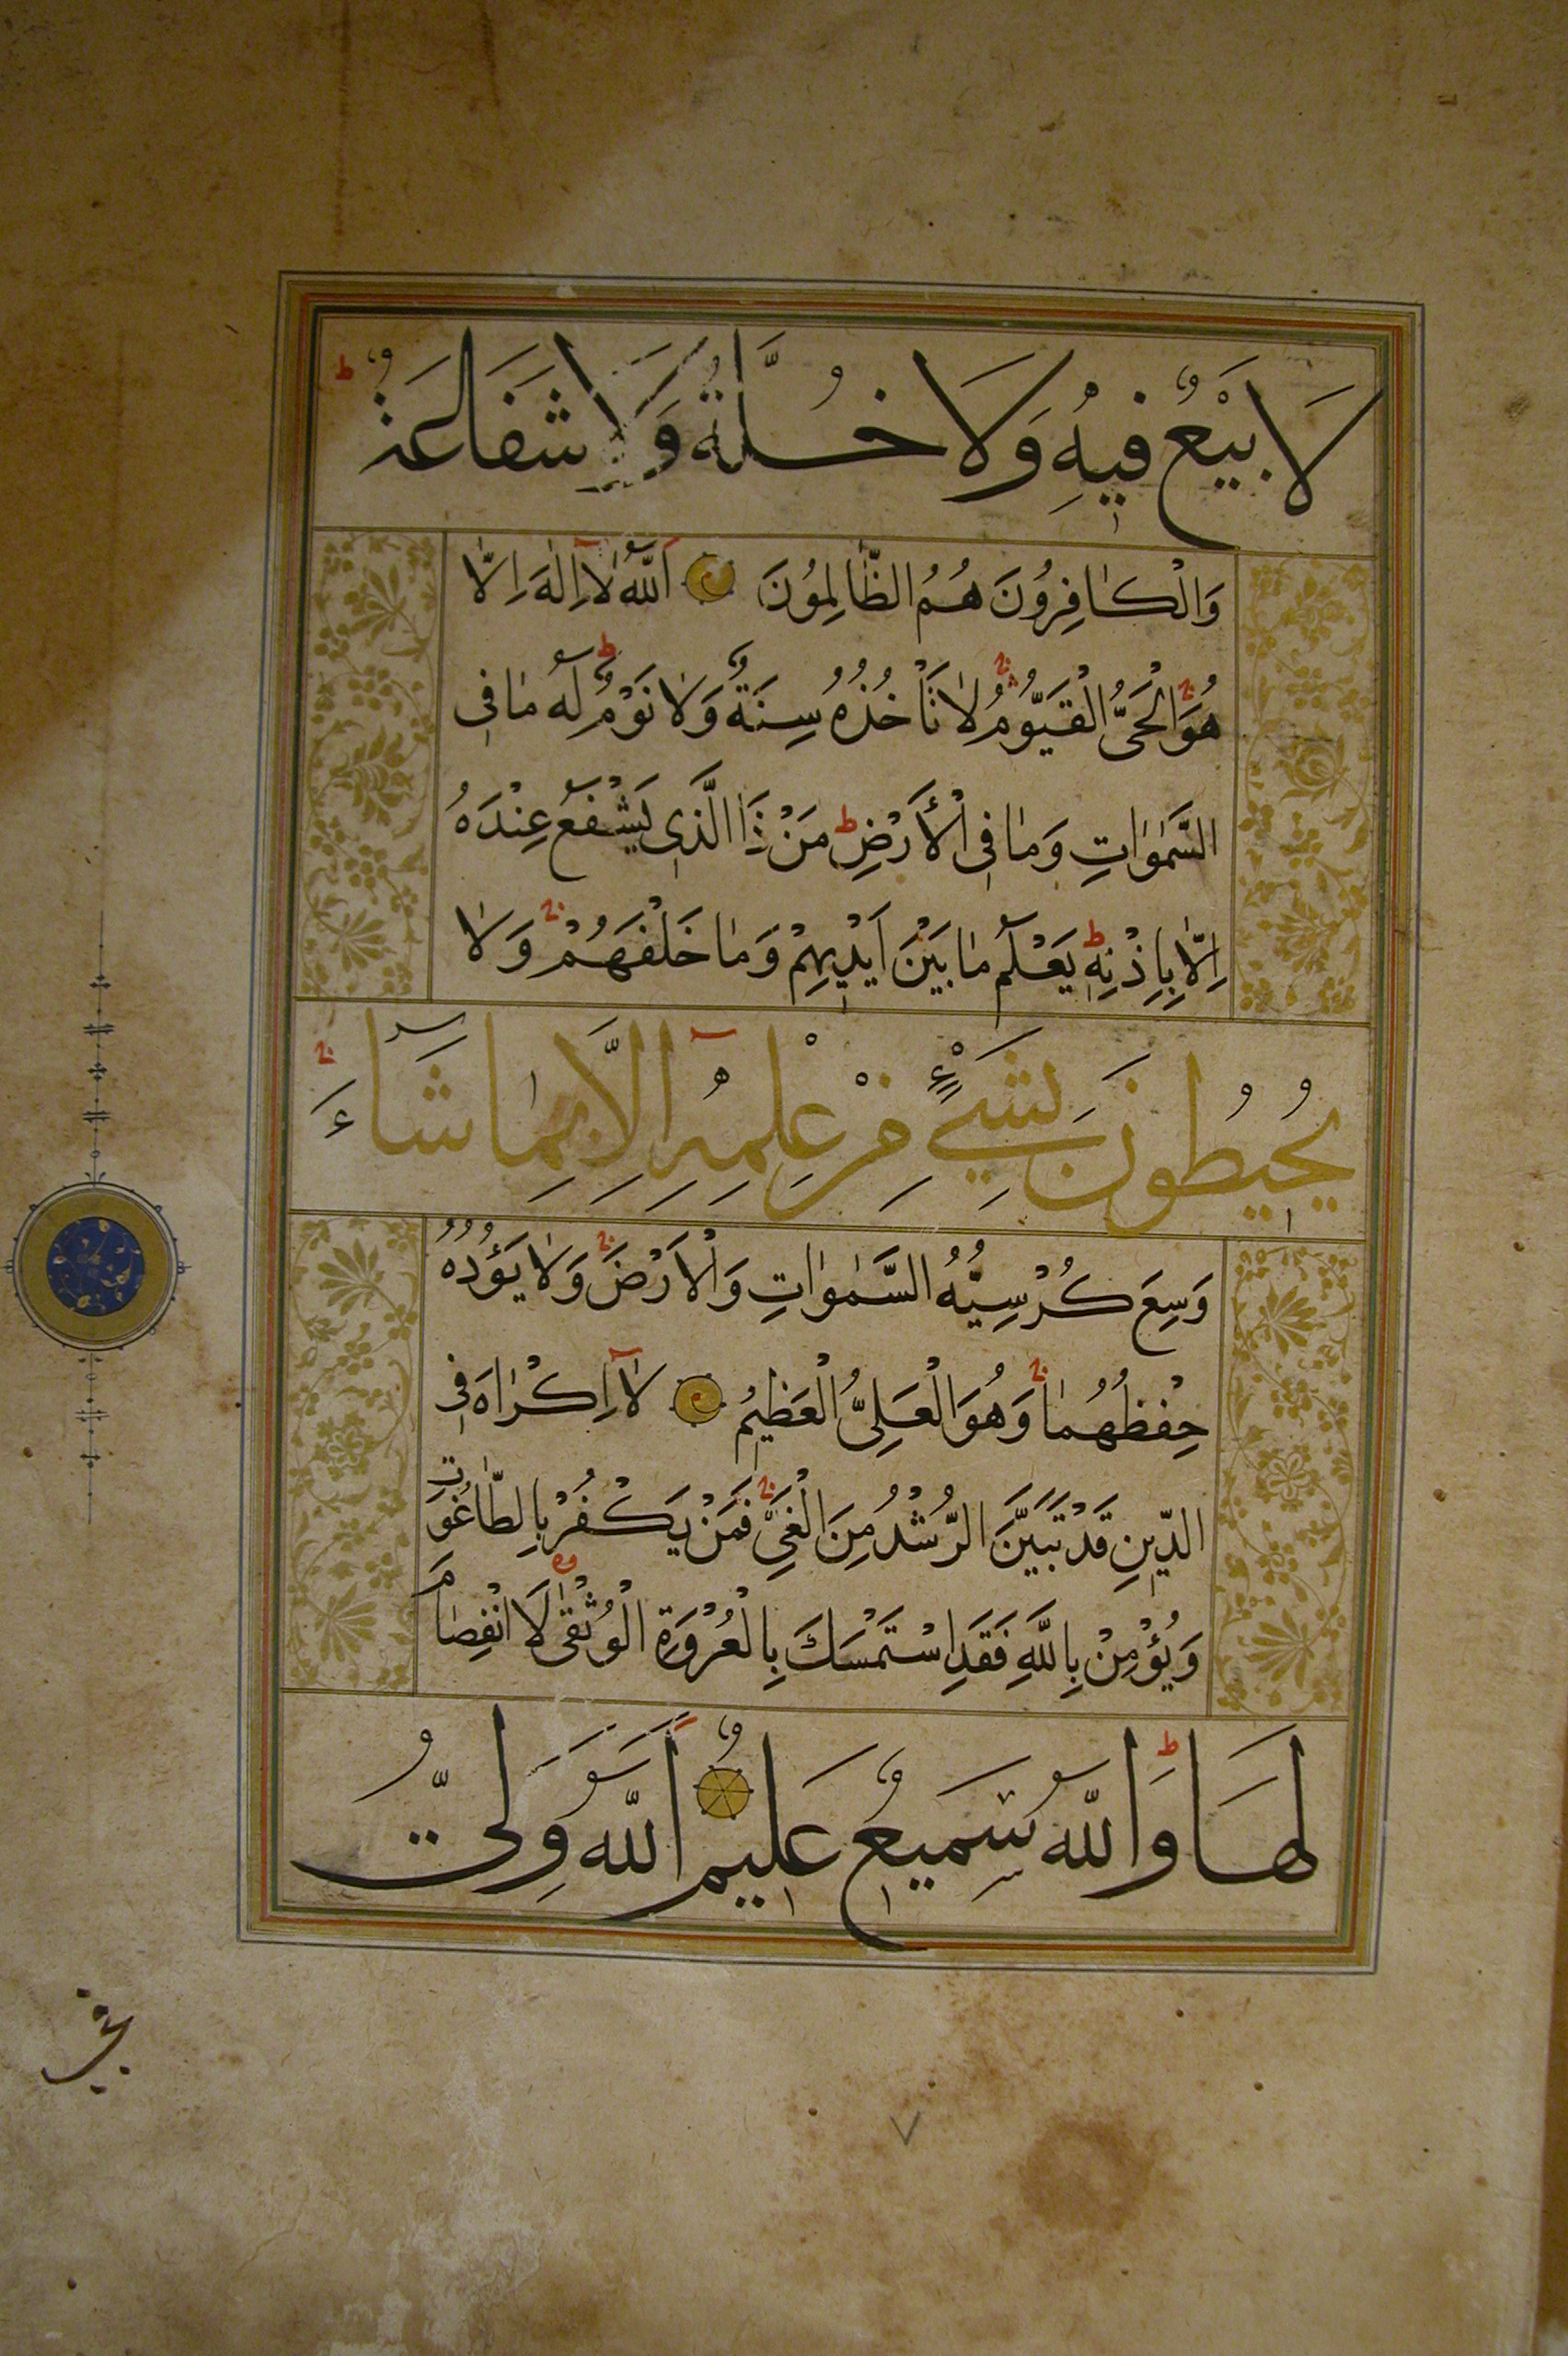 لَا بَيْعٌ فِيهِ وَلَا خُلَّةٌ وَلَا شَفَاعَةٌ ط
وَالْكَافِرُونَ هُمُ الظَّالِمُونَ اَللّٰهُ لَآ اِلٰهَ اِلَّا
هُوَ الْحَيُّ الْقَيُّومُ لَا تَأْخُذُهُ سِنَةٌ وَلَا نَوْمٌ ط لَهُ مَا فِي
السَّمٰوَاتِ وَمَا فِي الْأَرْضِ ط مَنْ ذَا الَّذِي يَشْفَعُ عِنْدَهُ
اِلَّا بِاِذْنِهِ ط يَعْلَمُ مَا بَيْنَ اَيْدِيهِمْ وَمَا خَلْفَهُمْ وَلَا
يُحِيطُونَ بِشَيْءٍ مِنْ عِلْمِهِ اِلَّا بِمَا شَآءَ
وَسِعَ كُرْسِيُّهُ السَّمٰوَاتِ وَالْاَرْضَ وَلَا يَؤُدُهُ
حِفْظُهُمَا وَهُوَ الْعَلِيُّ الْعَظِيمُ لَآ اِكْرَاهَ فِي
الدِّينِ قَدْ تَبَيَّنَ الرُّشْدُ مِنَ الْغَيِّ فَمَنْ يَكْفُرْ بِالطَّاغُوتِ
وَيُؤْمِنْ بِاللّٰهِ فَقَدِ اسْتَمْسَكَ بِالْعُرْوَةِ الْوُثْقٰى لَا انْفِصَامَ
لَهَا ط وَاللّٰهُ سَمِيعٌ عَلِيمٌ اَللّٰهُ وَلِيُّ
٧